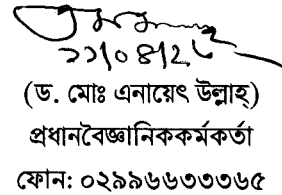 ২২/০৪/২৫
(ড. মোঃ এনায়েৎ উল্লাহ্)
প্রধানবৈজ্ঞানিককর্মকর্তা
ফোন: ০২৯৯৬৬৩৩৩৬৫